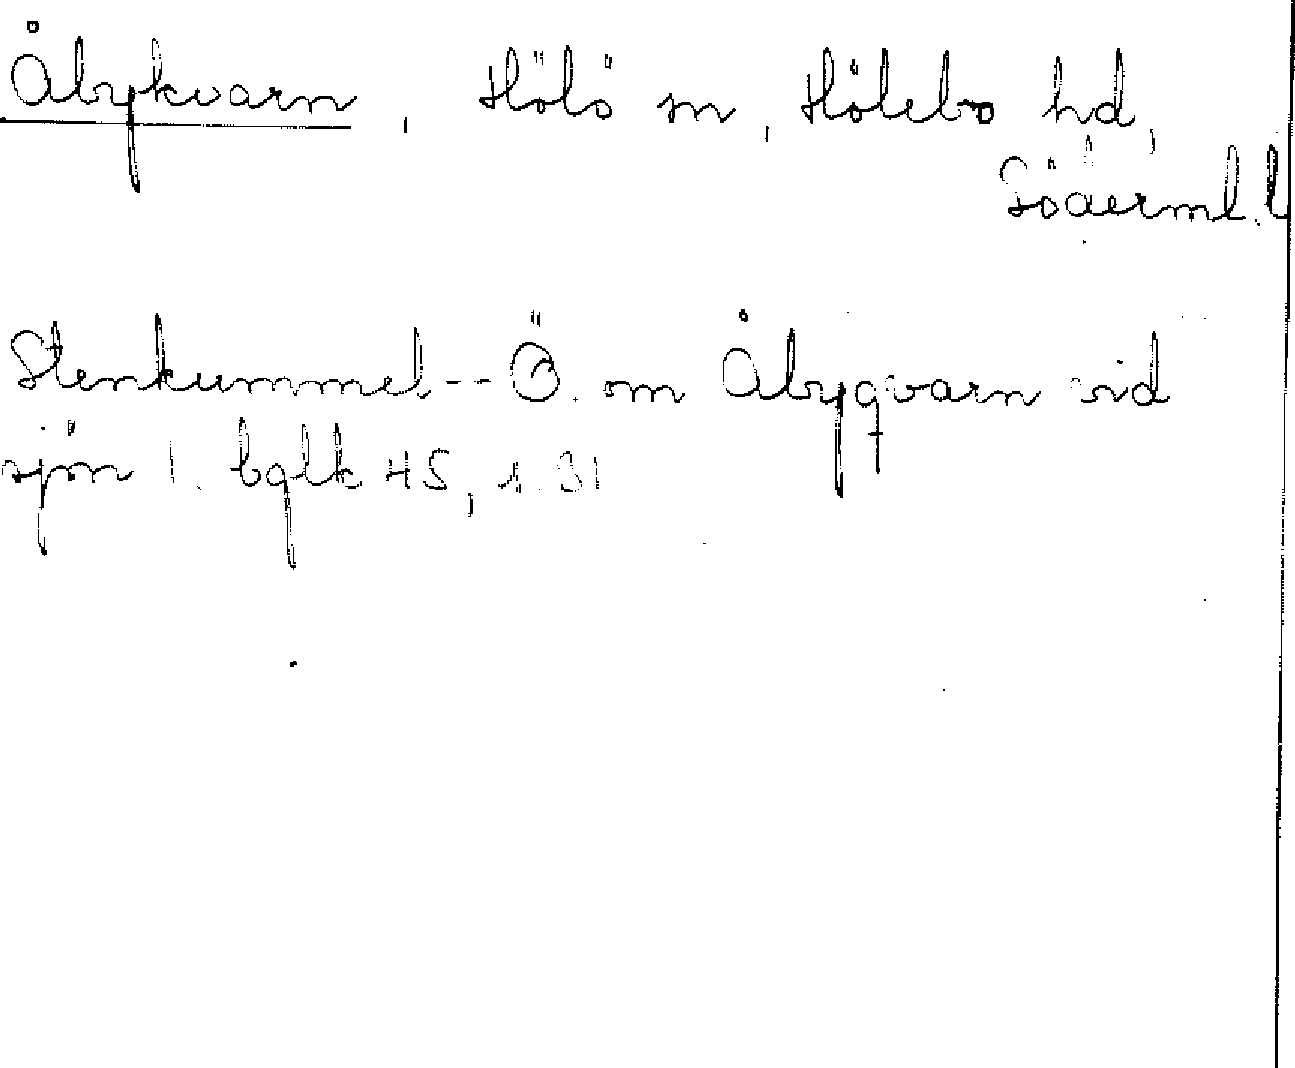 Åbykvarn, Hölö sn, Hölebo hd,
Söderml. l
Stenkummel -- Ö. om Åbyqvarn vid
sjön 1. bglk 45, s. 31